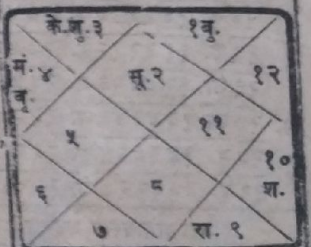 के.शु.३ १बु.
मं.४ सू.२ १२
बृ.
५ ११
१०
६ ८ श.
७ रा.९